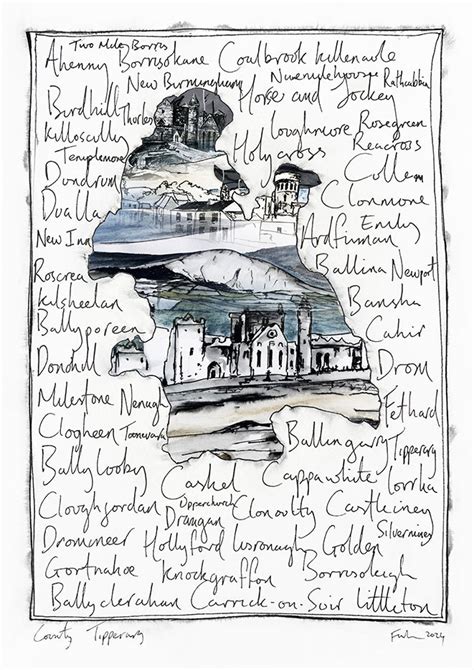 Two Mile Borris
Ahenny Borrisokane Coalbrook Killenaule
New Birmingham Ninemilehouse Rathcabbin
Birdhill Thurles Horse and Jockey
Killoscully Loughmore Rosegreen
Templemore Holycross Rearcross
Dundrum Cullen
Dualla Clonmore
New Inn Ardfinnan Emly
Roscrea Ballina Newport
Kilsheelan Bansha
Ballyporeen Cahir
Donohill Drom
Milestone Nenagh Fethard
Clogheen Toomevara Ballingarry Tipperary
Ballylooby Cashel Cappawhite Lorrha
Cloughjordan Upperchurch Clonoulty Castleiney
Drangan Silvermines
Dromineer Hollyford Lisronagh Golden
Gortnahoe Knockgraffon Borrisoleigh
Ballyclerahan Carrick-on-Suir Littleton
County Tipperary 2024